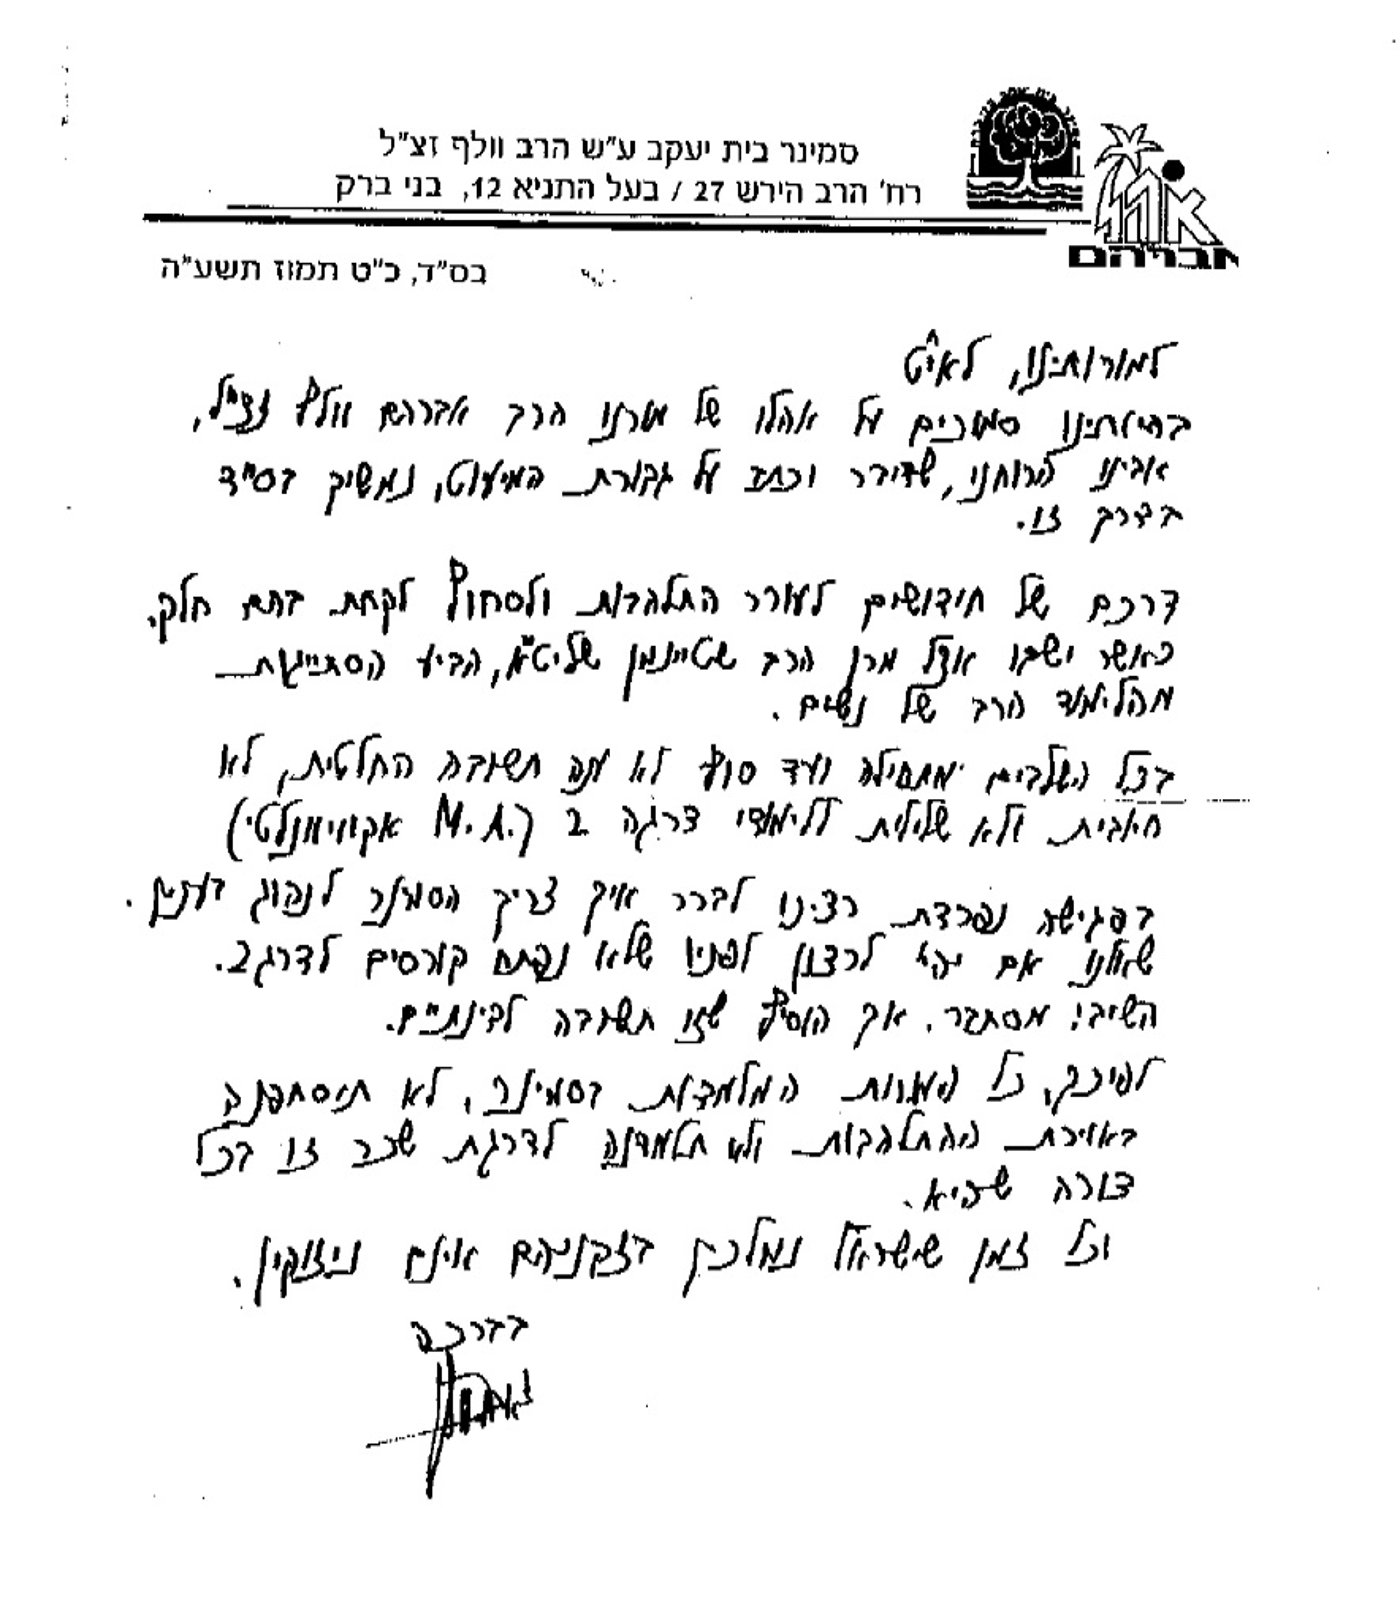 סמינר בית יעקב ע"ש הרב וולף זצ"ל
רח' הרב הירש 27 / בעל התניא 12, בני ברק
אברהם
בס"ד, כ"ט תמוז תשע"ה
למורותינו, לאי"ט
בהיותינו סמוכים על אהלו של מורנו הרב אברהם וולף זצ"ל,
אבינו הרוחני, שדיבר וכתב על גבורת המיעוט, נמשיך בס"ד
בדרך זו.
דרכם של חידושים לעורר התלהבות ולסחוף לקחת בהם חלק.
כאשר ישבו אצל מרן הרב שטיינמן שליט"א, הביע הסתייגות
מהלימוד הרב של נשים.
בכל השלבים מתחילה ועד סוף לא ענה תשובה החלטית, לא
חיובית ולא שלילית ללימודי דרגה 2 (M.A. אקוויוולנטי)
בפגישה נפרדת רצינו לברר איך צריך הסמינר לנהוג בענין.
שאלנו אם יהי' לרצון לפניו שלא נפתח קורסים לדרגה 2.
השיב: מסתבר. אך הוסיף שזו תשובה לבינתיים.
לפיכך, כל המורות המלמדות בסמינר, לא תיסחפנה
באוירת ההתלהבות ולא תלמדנה לדרגת שכר זו בכל
צורה שהיא.
וכל זמן שישראל נמלכין בזקניהם אינם ניזוקין.
בברכה